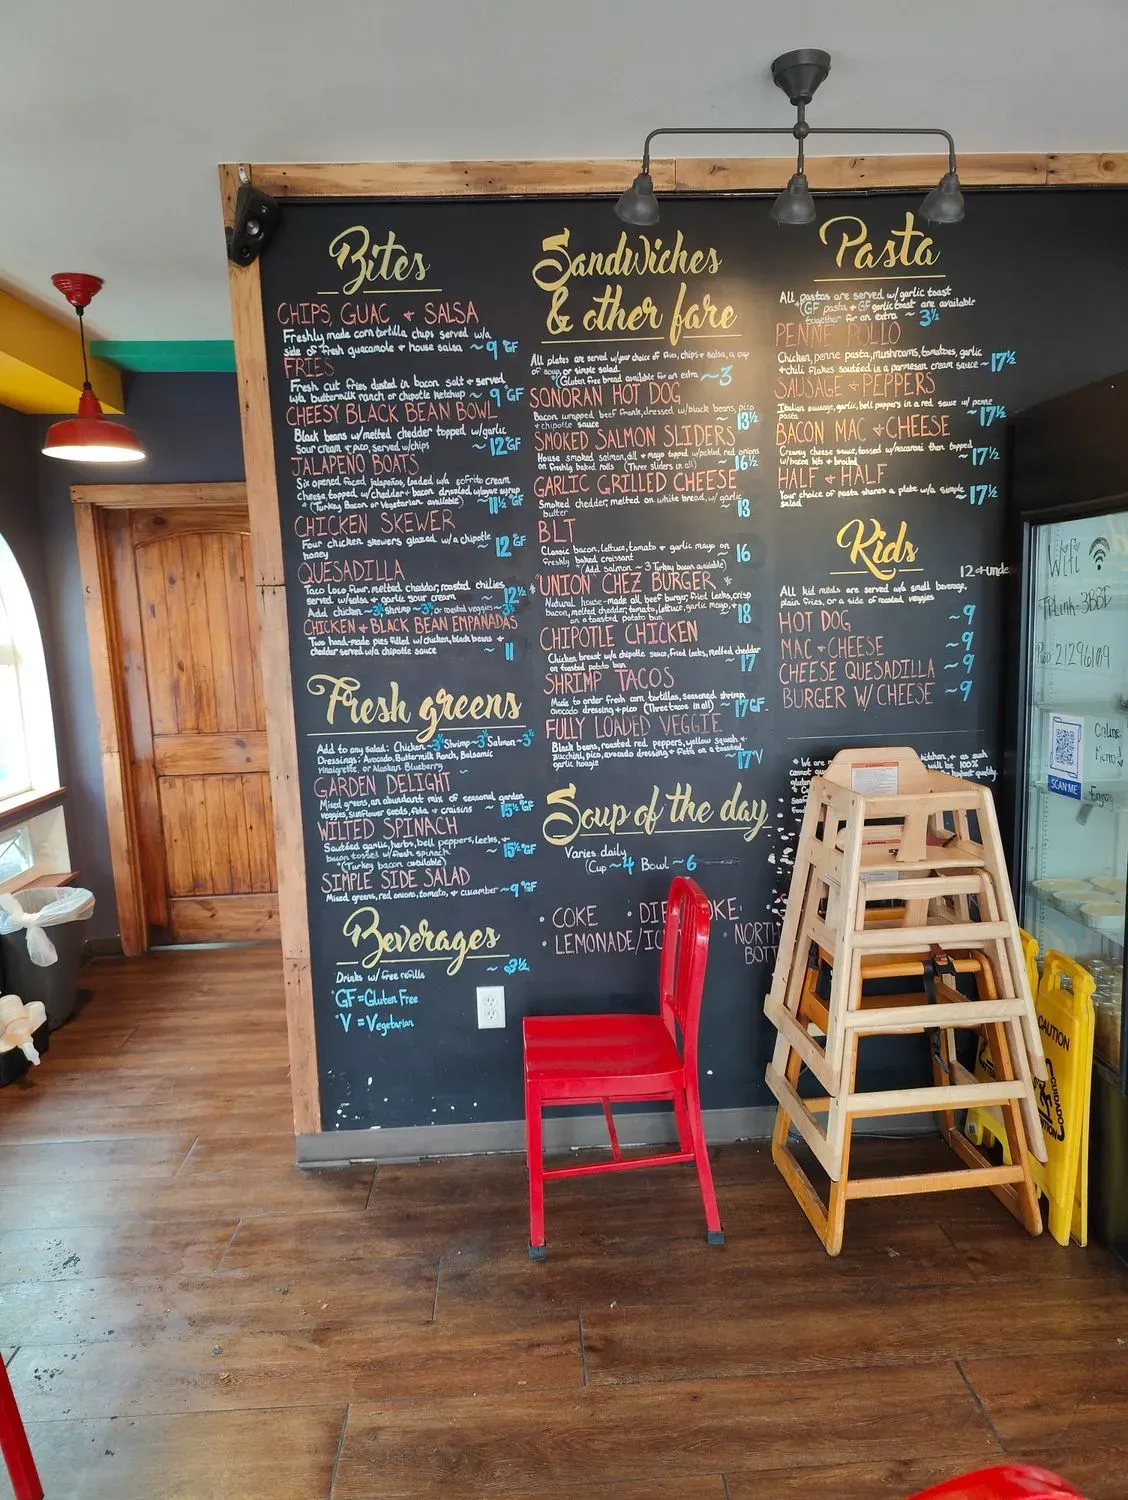 Bites
CHIPS, GUAC + SALSA
Freshly made corn tortilla chips served w/a
side of fresh guacamole + house salsa ~ 9 GF
FRIES
Fresh cut fries dusted in bacon salt + served
w/a buttermilk ranch or chipotle ketchup ~ 9 GF
CHEESY BLACK BEAN BOWL
Black beans w/melted chedder topped w/garlic
sour cream + pico, served w/chips ~ 12 GF
JALAPENO BOATS
Six opened faced jalapeños, loaded w/a sofrito cream
cheese, topped w/chedder + bacon drizzled w/agave syrup
*(Turkey Bacon or Vegetarian available) ~ 11½ GF
CHICKEN SKEWER
Four chicken skewers glazed w/a chipotle
honey ~ 12 GF
QUESADILLA
Taco Loco flour, melted cheddar, roasted chilies
served w/salsa + garlic sour cream ~ 12½
Add chicken ~3½ shrimp ~3½ or roasted veggies ~3½
CHICKEN & BLACK BEAN EMPANADAS
Two hand-made pies filled w/chicken, black beans +
chedder served w/a chipotle sauce ~ 11
Fresh greens
Add to any salad: Chicken ~3½ Shrimp ~3½ Salmon ~3½
Dressings: Avocado, Buttermilk Ranch, Balsamic
Vinaigrette, or Alaskan Blueberry
GARDEN DELIGHT
Mixed greens, an abundant mix of seasonal garden
veggies, sunflower seeds, feta + craisins ~ 15½ GF
WILTED SPINACH
Sauteéd garlic, herbs, bell peppers, leeks, +
bacon tossed w/fresh spinach ~ 15½ GF
*(Turkey bacon available)
SIMPLE SIDE SALAD
Mixed greens, red onions, tomato, + cucumber ~ 9 GF
Beverages
Drinks w/ free refills ~ 3½
*GF = Gluten Free
*V = Vegetarian
Sandwiches
& other fare
All plates are served w/your choice of fries, chips + salsa, a cup
of soup, or simple salad.
*(Gluten free bread available for an extra ~3
SONORAN HOT DOG
Bacon wrapped beef frank, dressed w/black beans, pico
+ chipotle sauce 13½
SMOKED SALMON SLIDERS
House smoked salmon, dill + mayo topped w/pickled red onions
on freshly baked rolls (Three sliders in all) ~ 16½
GARLIC GRILLED CHEESE
Smoked chedder, melted on white bread, w/ garlic
butter ~ 13
BLT
Classic bacon, lettuce, tomato + garlic mayo on
freshly baked croissant ~ 16
*(Add salmon ~3 Turkey bacon available)
*"UNION" CHEZ BURGER *
Natural house-made all beef burger, fried leeks, crisp
bacon, melted chedder, tomato, lettuce, garlic mayo, +
on a toasted potato bun ~ 18
CHIPOTLE CHICKEN
Chicken breast w/a chipotle sauce, fried leeks, melted chedder
on toasted potato bun ~ 17
SHRIMP TACOS
Made to order fresh corn tortillas, seasoned shrimp,
avocado dressing + pico (Three tacos in all) ~ 17 GF
FULLY LOADED VEGGIE
Black beans, roasted red peppers, yellow squash +
zucchini, pico, avocado dressing + feta on a toasted
garlic hoagie ~ 17 V
Soup of the day
Varies daily
(Cup ~ 4 Bowl ~ 6
• COKE
• LEMONADE/
Pasta
All pastas are served w/ garlic toast
*(GF pasta & GF garlic toast are available
together for an extra ~ 3½
PENNE POLLO
Chicken, penne pasta, mushrooms, tomatoes, garlic
+ chili flakes sautéed in a parmesan cream sauce ~ 17½
SAUSAGE + PEPPERS
Italian sausage, garlic, bell peppers in a red sauce w/ penne
pasta ~17½
BACON MAC + CHEESE
Creamy cheese sauce, tossed w/macaroni then topped
w/bacon bits + broiled ~17½
HALF + HALF
Your choice of pasta shares a plate w/a simple
salad ~ 17½
Kids
12 + under
All kid meals are served w/a small beverage,
plain fries, or a side of roasted veggies
HOT DOG ~9
MAC + CHEESE ~9
CHEESE QUESADILLA ~9
BURGER W/ CHEESE ~9
* We are
kitchen, + as such
cannot
will be 100%
highest quality.
Wifi
TPLink-3BBD
21296109
Online
menu
SCAN ME
Enjoy
CAUTION
CUIDADO